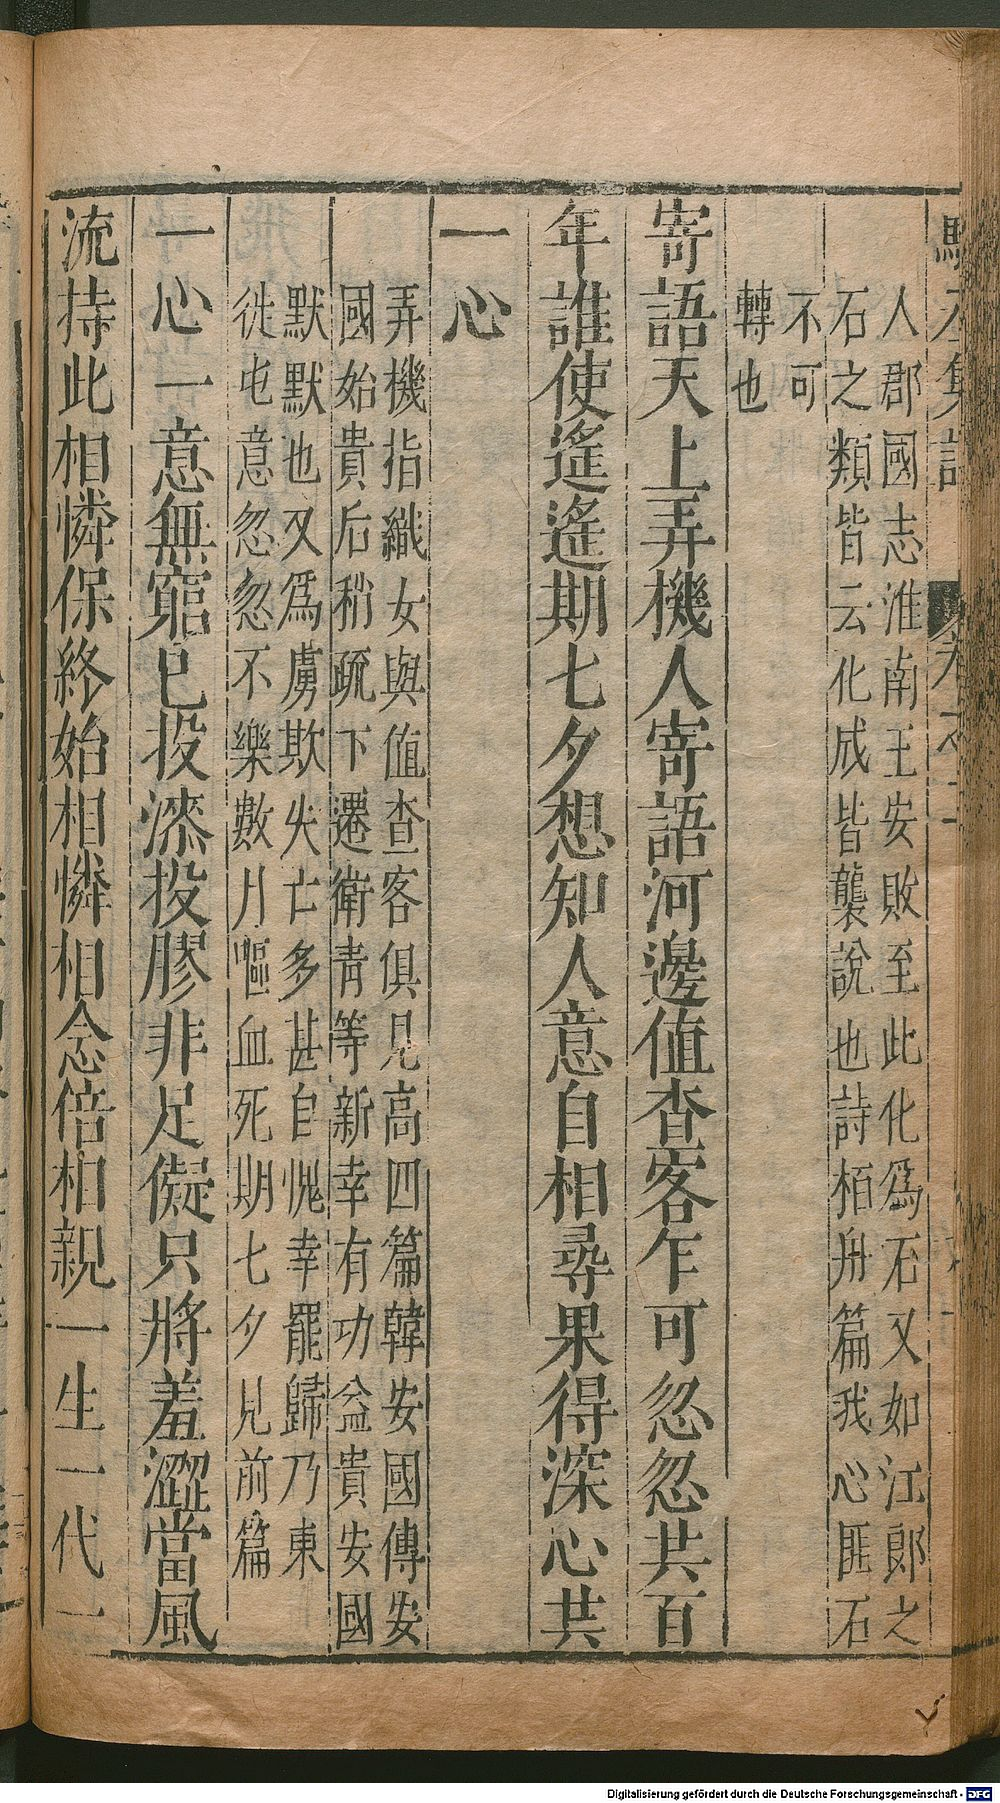 人郡國志淮南王安敗至此化爲石又如江郎之
石之類皆云化成皆襲說也詩栢舟篇我心匪石
不可
轉也
寄語天上弄機人寄語河邊値査客乍可忽忽共百
年誰使遙遙期七夕想知人意自相尋果得深心共
一心
弄機指織女與値査客俱見高四篇韓安國傳安
國始貴后稍疏下遷衛青等新幸有功益貴安國
默默也又爲虜欺失亡多甚自愧幸罷歸乃東
徙屯意忽忽不樂數月嘔血死期七夕見前篇
一心一意無窮已投漆投膠非足儗只將羞澀當風
流持此相憐保終始相憐相念倍相親一生一代一
Digitalisierung gefördert durch die Deutsche Forschungsgemeinschaft - DFG